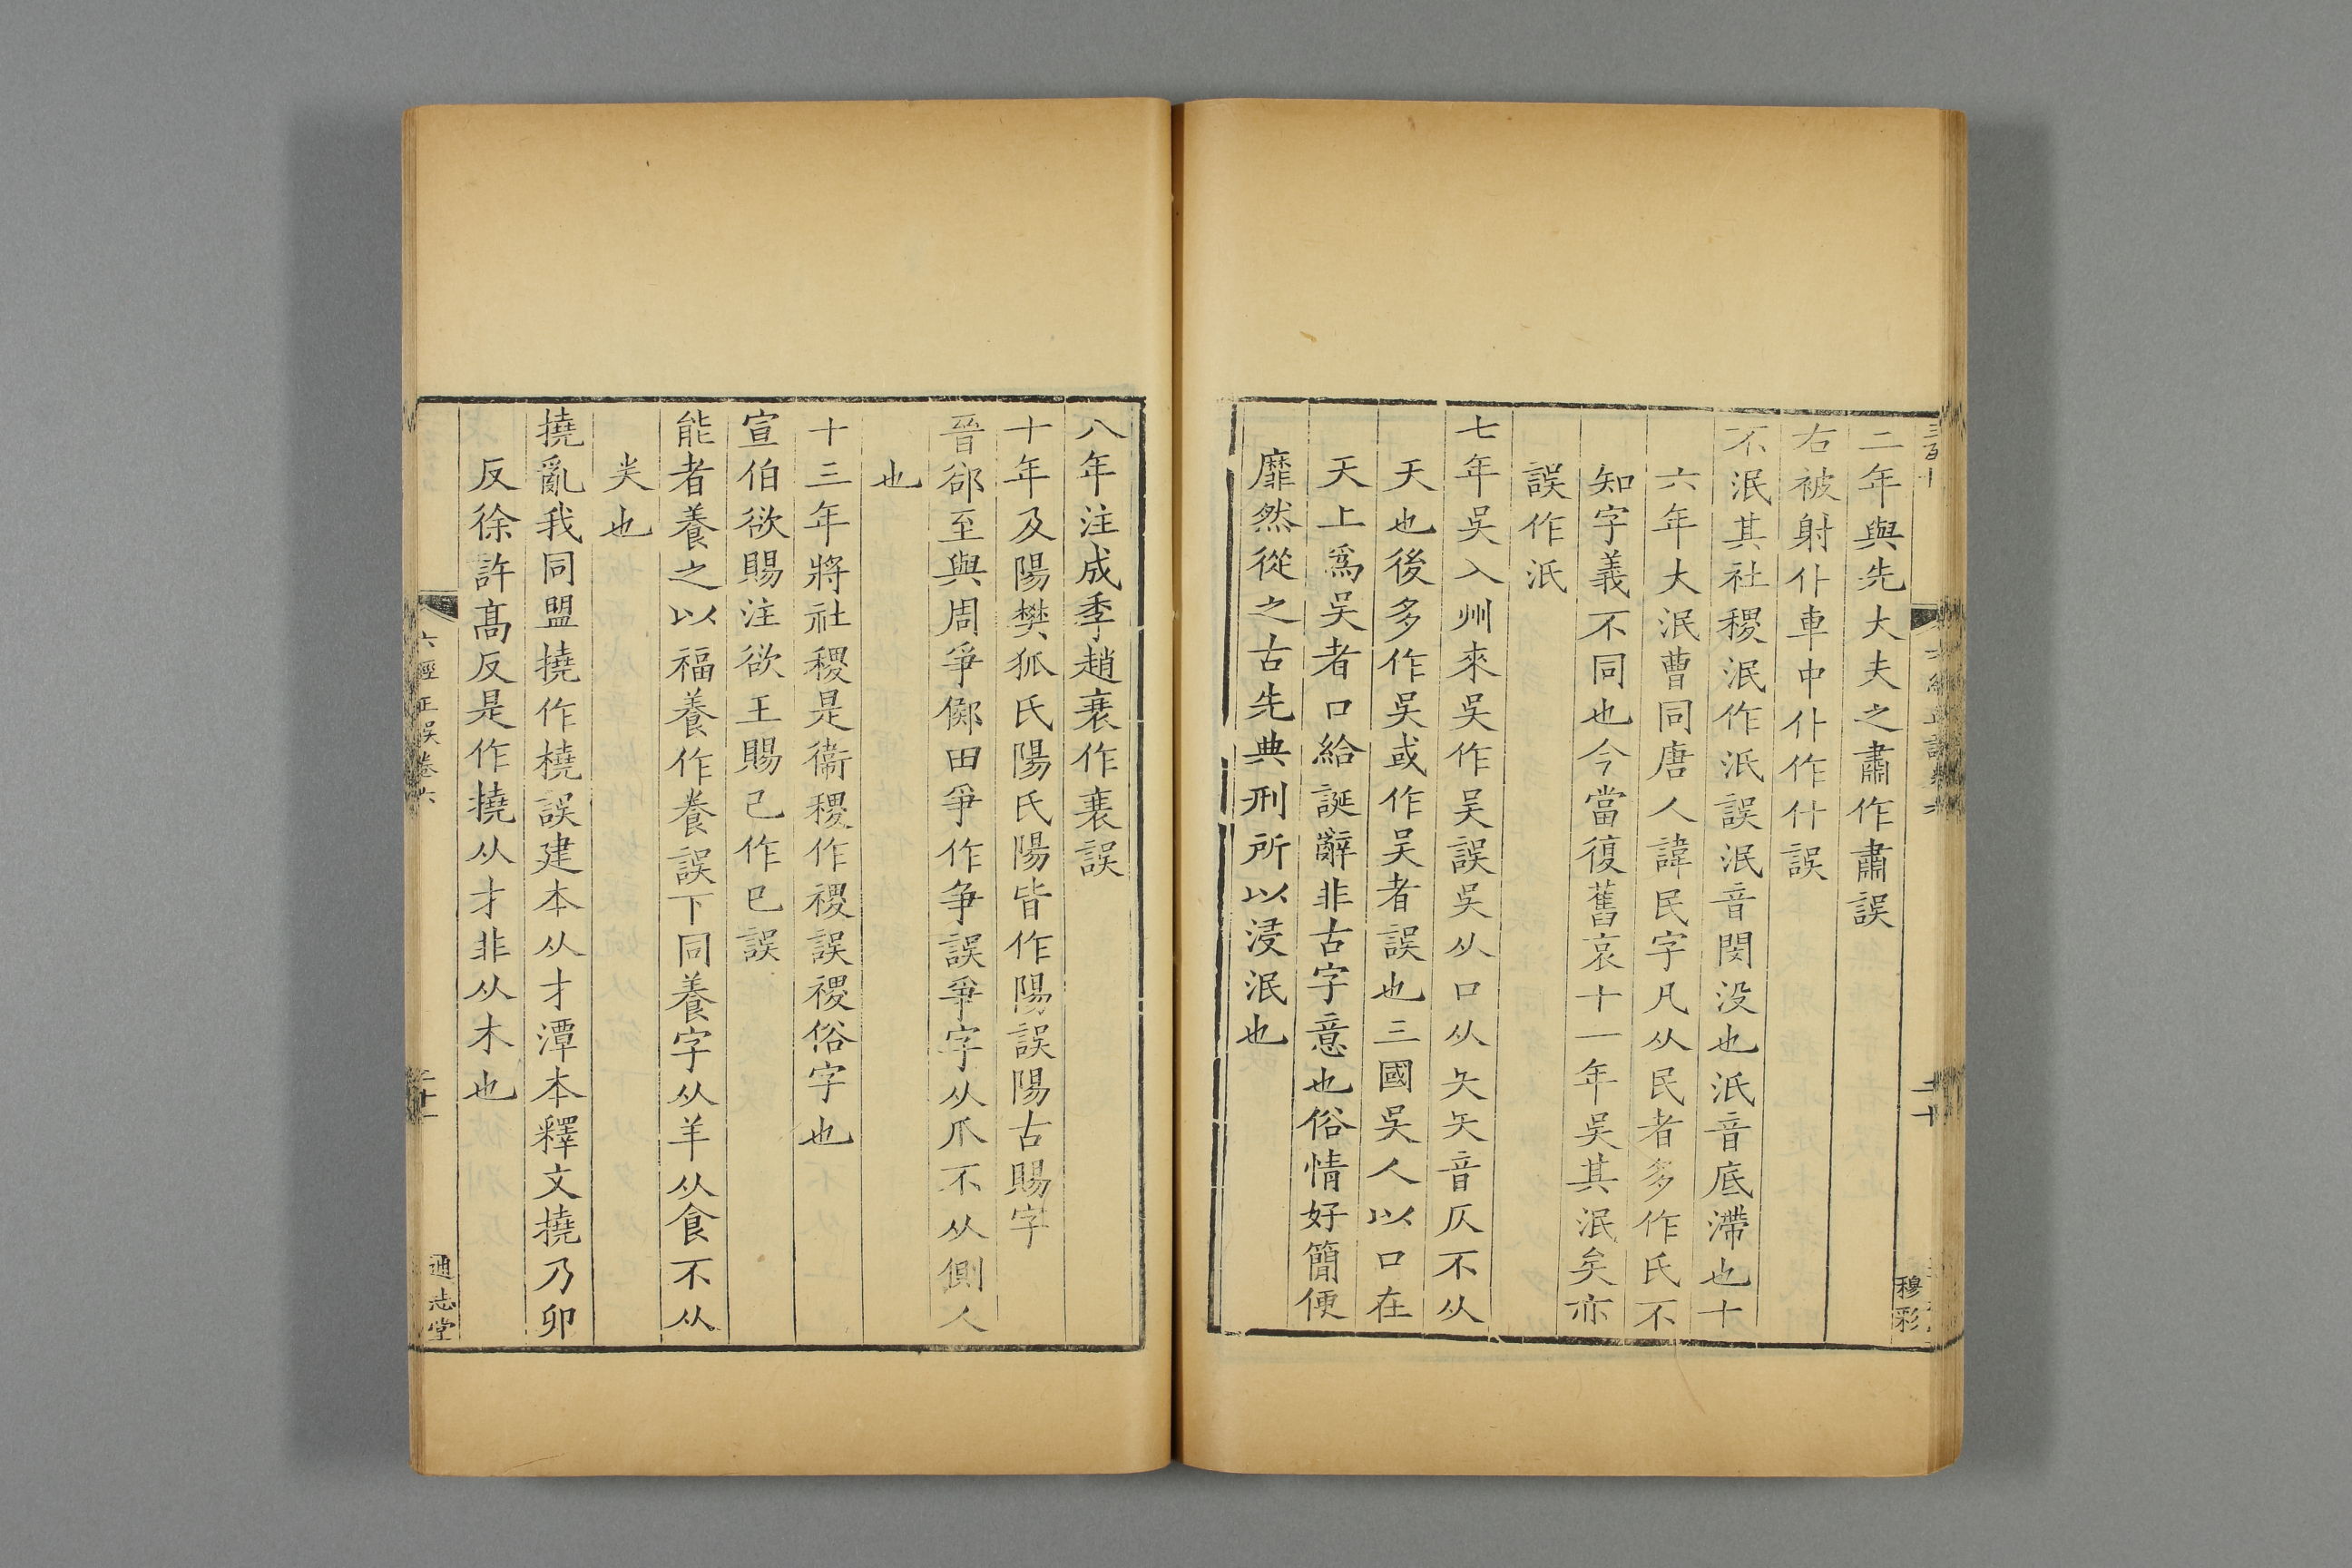 三百十
二年與先大夫之肅作肅誤
右被射仆車中仆作什誤
不泯其社稷泯作泜誤泯音閔没也泜音底滯也十
六年大泯曹同唐人諱民字凡从民者多作氏不
知字義不同也今當復舊哀十一年吳其泯矣亦
誤作泜
七年吳入州來吳作吴誤吳从口从夨夨音仄不从
天也後多作吴或作吴者誤也三國吳人以口在
天上爲吴者口給誕辭非古字意也俗情好簡便
靡然從之古先典刑所以浸泯也
穆彩
八年注成季趙衰作襄誤
十年及陽樊狐氏陽氏陽皆作陽誤陽古賜字
晉郤至與周爭鄇田爭作争誤爭字从爪不从側人
也
十三年將社稷是衞稷作禝誤禝俗字也
宣伯欲賜注欲王賜己作巳誤
能者養之以福養作飬誤下同養字从羊从食不从
𡗗也
撓亂我同盟撓作橈誤建本从才潭本釋文撓乃卯
反徐許高反是作撓从才非从木也
六經正誤卷六
二十一
通志堂